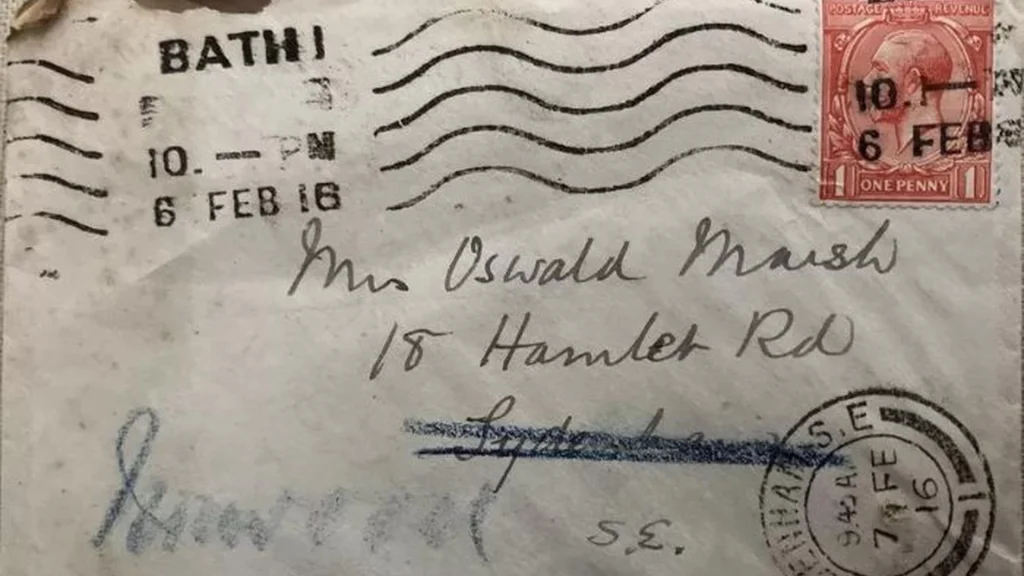 BATH 1
10. — PM
6 FEB 16
POSTAGE REVENUE
10. —
6 FEB
1 ONE PENNY 1
Mrs Oswald Marsh
18 Hamlet Rd
Sydenham
Norwood
S.E.
S.E
9.45 AM
7 FE
16